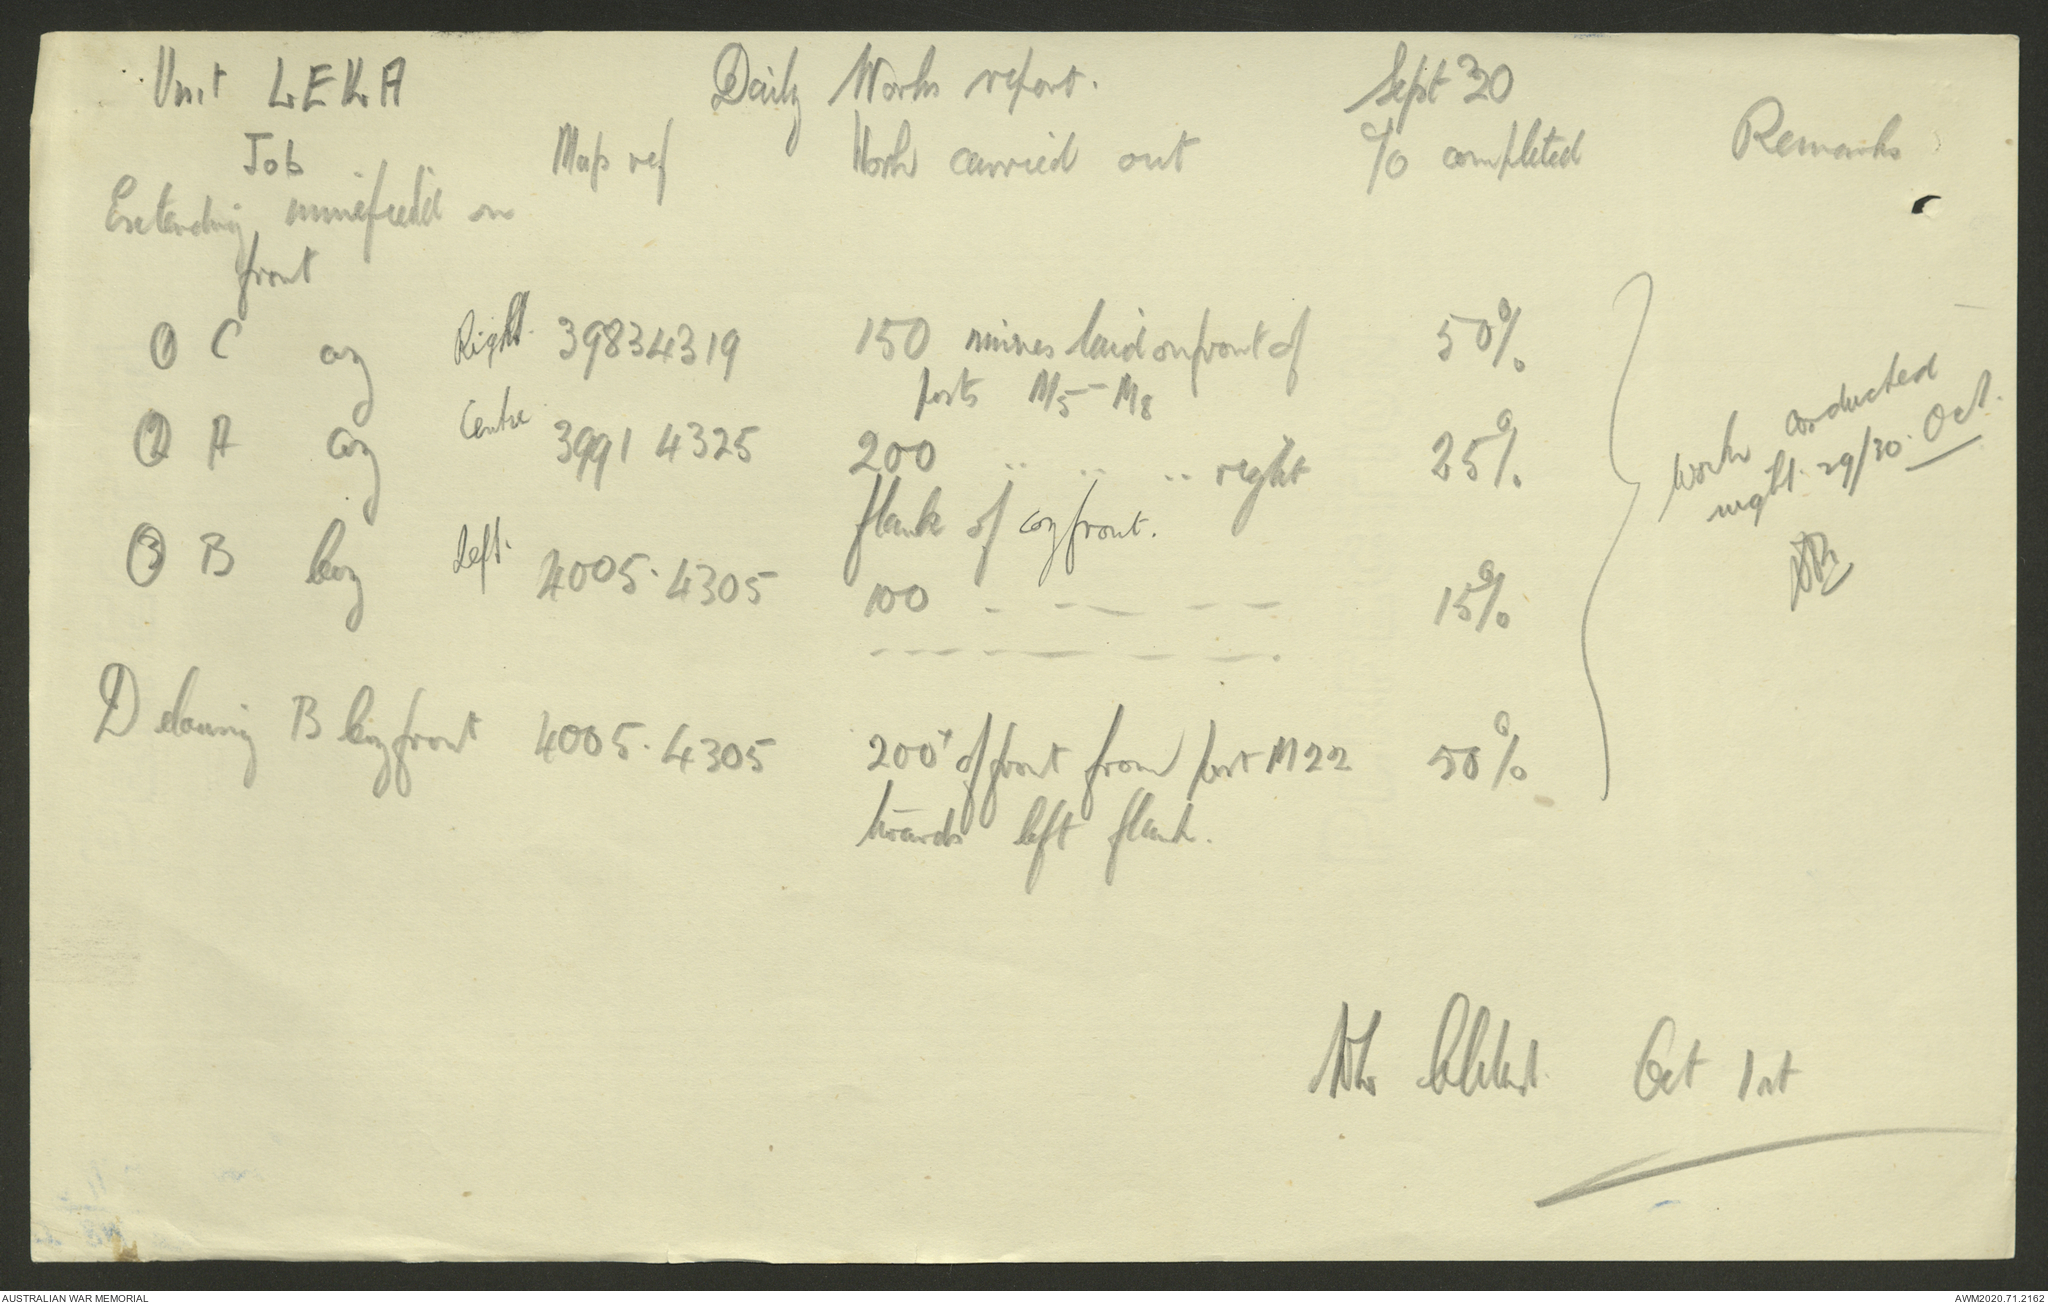 Unit LEKA Daily Works report. Sept 30
Job Map ref Work carried out % completed Remarks
Extending minefield on
front
① C coy Right. 39834319 150 mines laid on front of 50%
posts M5-M8
② A coy Centre 3991 4325 200 " " " right 25%
flank of coy front.
③ B Coy Left. 4005. 4305 100 - - - - 15%
- - - - - -.
Work conducted
night. 29/30. Oct.
Delousing B Coy front 4005. 4305 200ˣ of front from post M22 50%
towards left flank.
Oct 1st
AUSTRALIAN WAR MEMORIAL AWM2020.71.2162